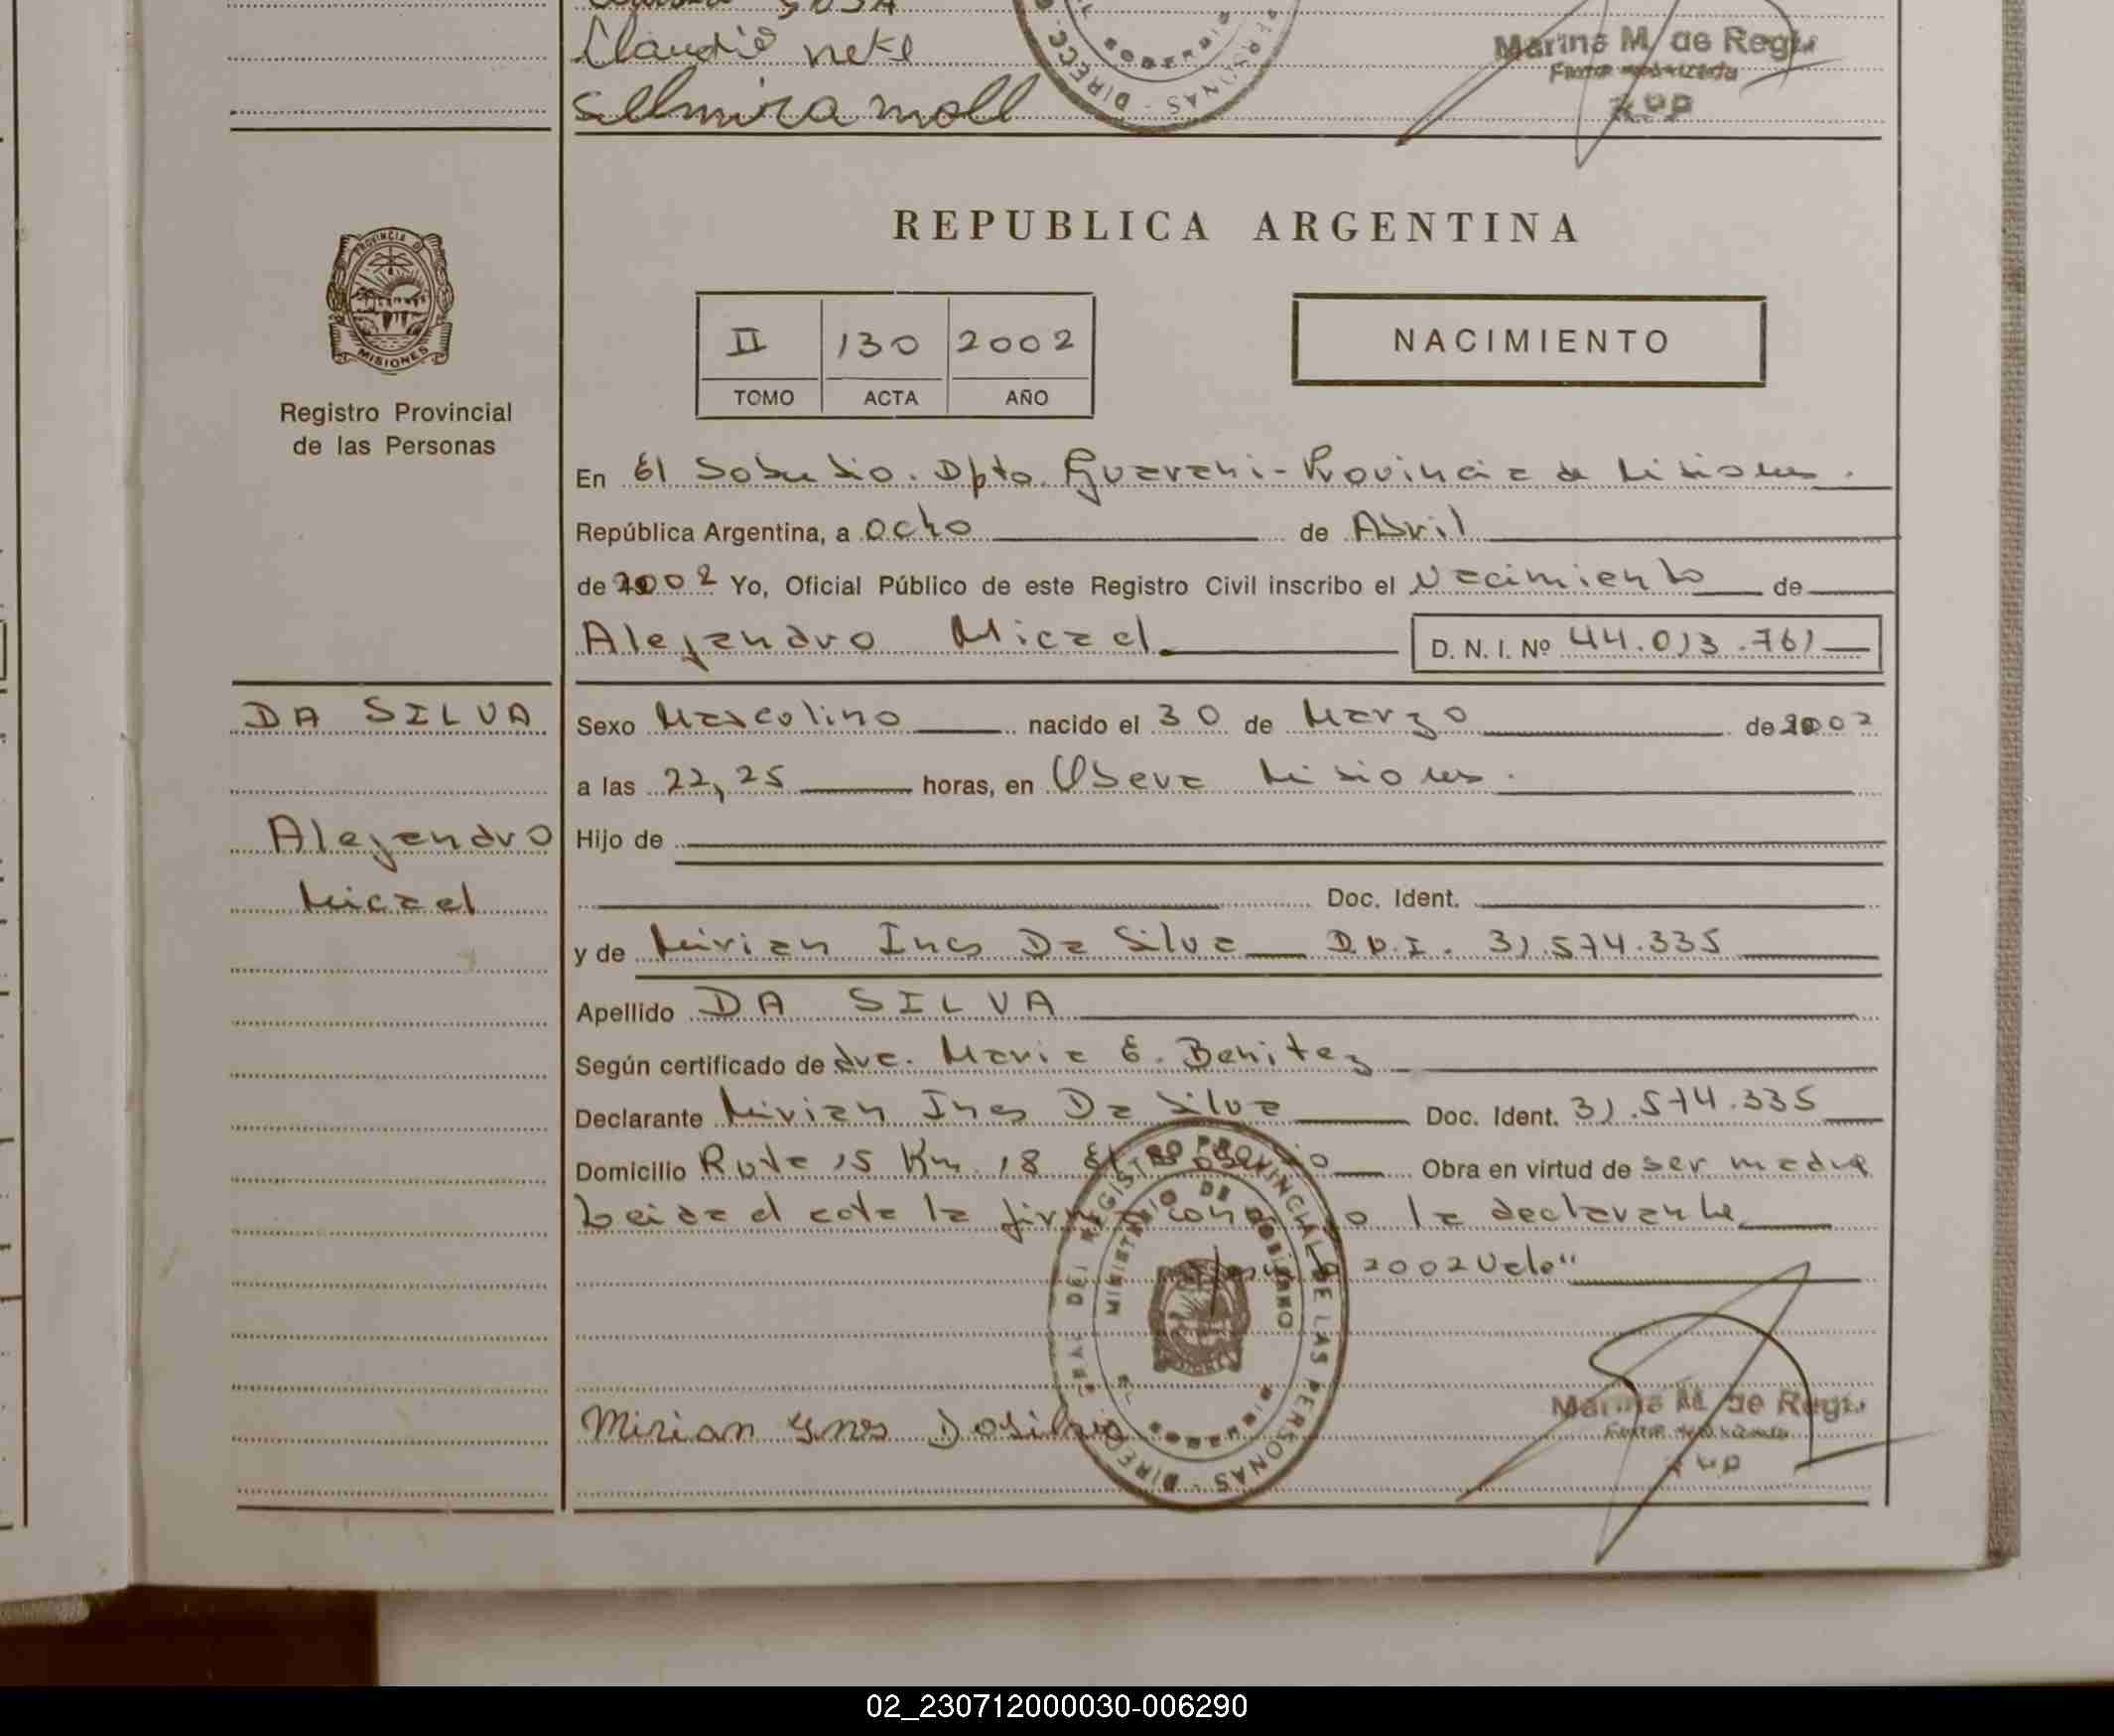 Claudio neke
Selmira moll
Marina M. de Regis
Firma autorizada
REPUBLICA ARGENTINA
PROVINCIA DE
MISIONES
Registro Provincial
de las Personas
II 130 2002
TOMO ACTA AÑO
NACIMIENTO
En El Soberbio. Dpto. Guarani - Provincia de Misiones.
República Argentina, a Ocho de Abril
de 2002 Yo, Oficial Público de este Registro Civil inscribo el Nacimiento de
Alejandro Micael D. N. I. Nº 44.013.761
DA SILVA
Alejandro
Micael
Sexo Masculino nacido el 30 de Marzo de 2002
a las 22,25 horas, en Obera Misiones.
Hijo de
Doc. Ident.
y de Mirian Ines Da Silva D.N.I. 31.574.335
Apellido DA SILVA
Según certificado de dra. Maria E. Benitez
Declarante Mirian Ines Da Silva Doc. Ident. 31.574.335
Domicilio Ruta 15 Km 18 El Soberbio Obra en virtud de ser madre
Leida el acta la firma conmigo la declarante
2002 Vale"
Mirian Ynes Dasilva
REGISTRO PROVINCIAL DE LAS PERSONAS - DIRECC
MINISTERIO DE GOBIERNO
Marina M. de Regis
Firma autorizada
02_230712000030-006290